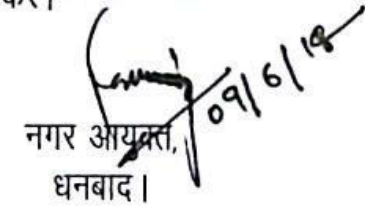 करें।
09/6/18
नगर आयुक्त,
धनबाद।